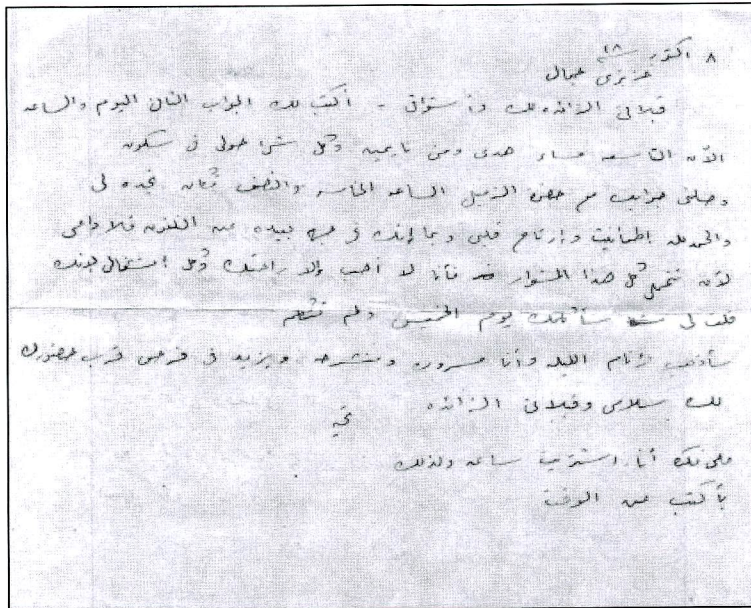 ٨ أكتوبر ٤٨
عزيزى جمال
قبلاتى الزائده لك وأشواقى - أكتب لك الجواب الثانى اليوم والساعه
الآن التاسعه مساء هدى ومنى نايمين وكل شىء حولى فى سكون
وصلنى جوابك مع حضرة الزميل الساعه الخامسه والنصف وكان نجده لى
والحمد لله اطمأنيت وارتاح قلبى وبما إنك فى جهه بعيده عن التلفون فلا داعى
لأن تتحمل كل هذا المشوار فأنا لا أحب إلا راحتك وكل انشغالى لأنك
قلت لى سأكلمك يوم الخميس ولم تتكلم
سأذهب لأنام الليله وأنا مسروره ومنشرحه ويزيد فى فرحى قرب حضورك
لك سلامى وقبلاتى الزائده
تحيه
ملحوظه أنا اشتريت ساعه ولذلك
بأكتب عن الوقت